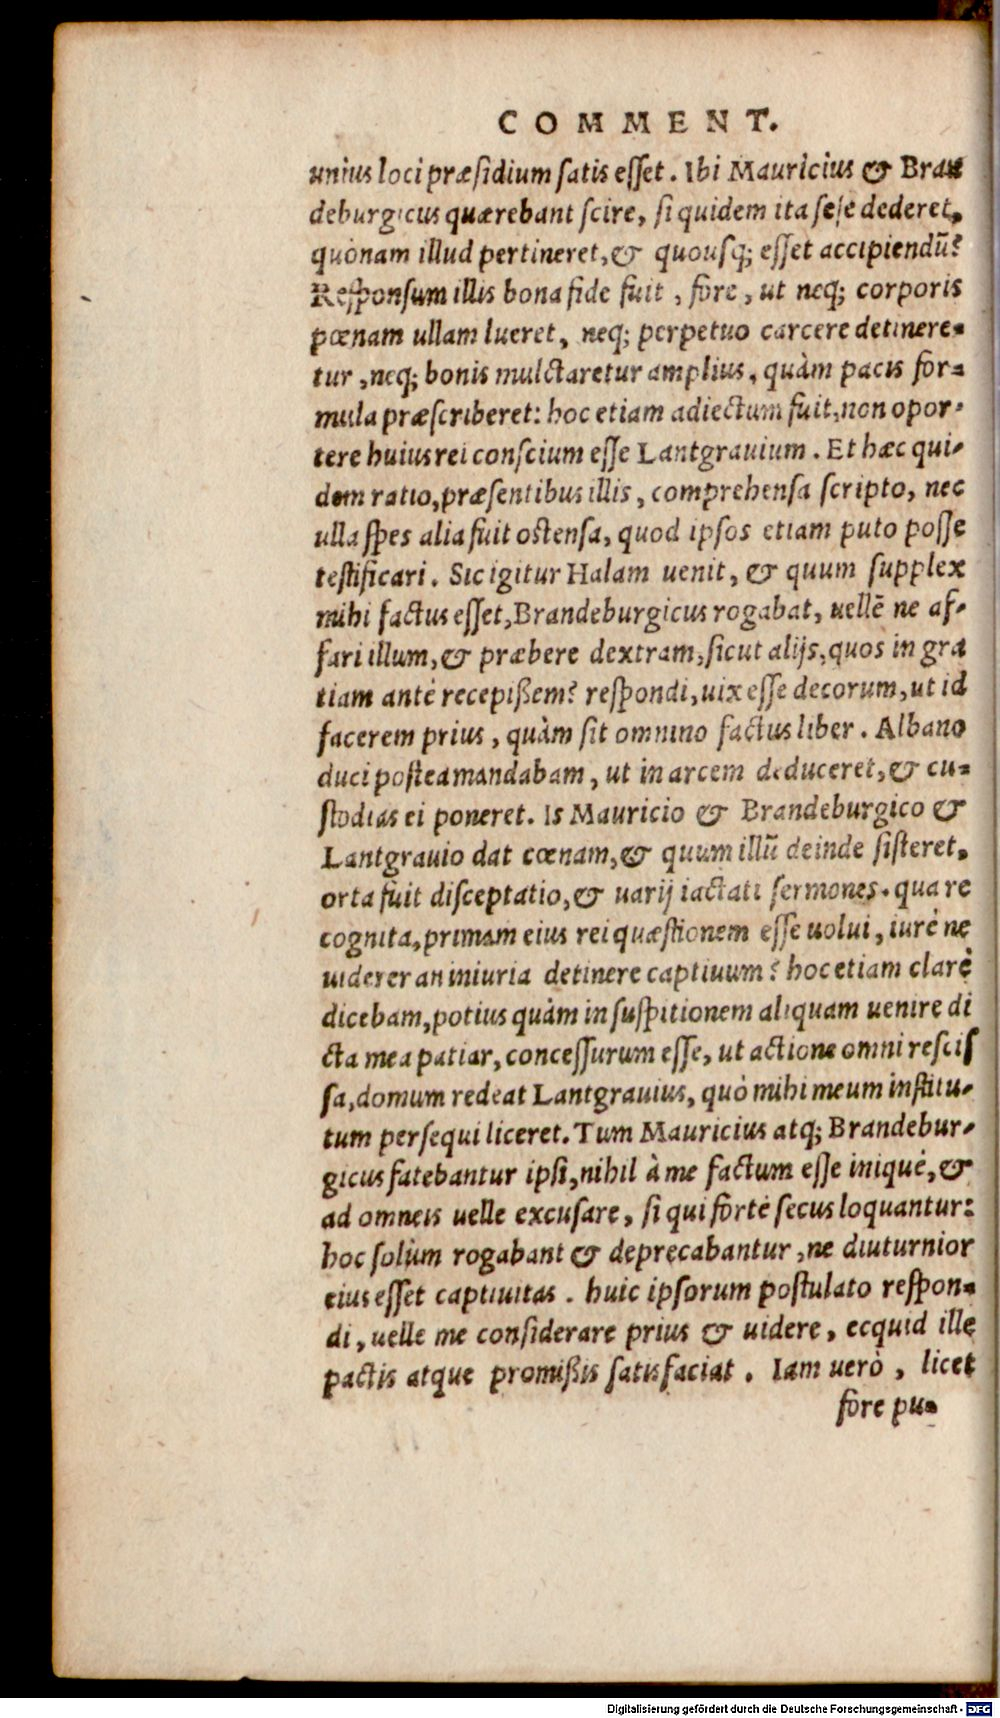 COMMENT.
unius loci præsidium satis esset. Ibi Mauricius & Bran
deburgicus quærebant scire, si quidem ita sese dederet,
quónam illud pertineret, & quousq; esset accipiendū?
Responsum illis bona fide fuit, fore, ut neq; corporis
pœnam ullam lueret, neq; perpetuo carcere detinere-
tur, neq; bonis mulctaretur amplius, quàm pacis for-
mula præscriberet: hoc etiam adiectum fuit, non opor-
tere huius rei conscium esse Lantgrauium. Et hæc qui-
dem ratio, præsentibus illis, comprehensa scripto, nec
ulla spes alia fuit ostensa, quod ipsos etiam puto posse
testificari. Sic igitur Halam uenit, & quum supplex
mihi factus esset, Brandeburgicus rogabat, uellē ne af-
fari illum, & præbere dextram, sicut alijs, quos in gra
tiam antè recepißem? respondi, uix esse decorum, ut id
facerem prius, quàm sit omnino factus liber. Albano
duci postea mandabam, ut in arcem deduceret, & cu-
stodias ei poneret. Is Mauricio & Brandeburgico &
Lantgrauio dat cœnam, & quum illū deinde sisteret,
orta fuit disceptatio, & uarij iactati sermones. qua re
cognita, primam eius rei quæstionem esse uolui, iurè ne
uiderer an iniuria detinere captiuum? hoc etiam clarè
dicebam, potius quàm in suspitionem aliquam uenire di
cta mea patiar, concessurum esse, ut actione omni rescis
sa, domum redeat Lantgrauius, quò mihi meum institu-
tum persequi liceret. Tum Mauricius atq; Brandebur-
gicus fatebantur ipsi, nihil à me factum esse iniquè, &
ad omneis uelle excusare, si qui fortè secus loquantur:
hoc solùm rogabant & deprecabantur, ne diuturnior
eius esset captiuitas. huic ipsorum postulato respon-
di, uelle me considerare prius & uidere, ecquid ille
pactis atque promißis satisfaciat. Iam uerò, licet
fore pu-
Digitalisierung gefördert durch die Deutsche Forschungsgemeinschaft - DFG